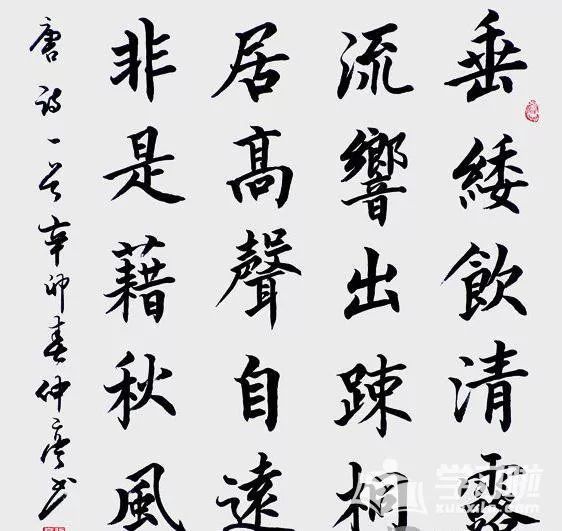 垂緌飲清露
流響出踈桐
居高聲自遠
非是藉秋風
唐詩一首辛卯春仲